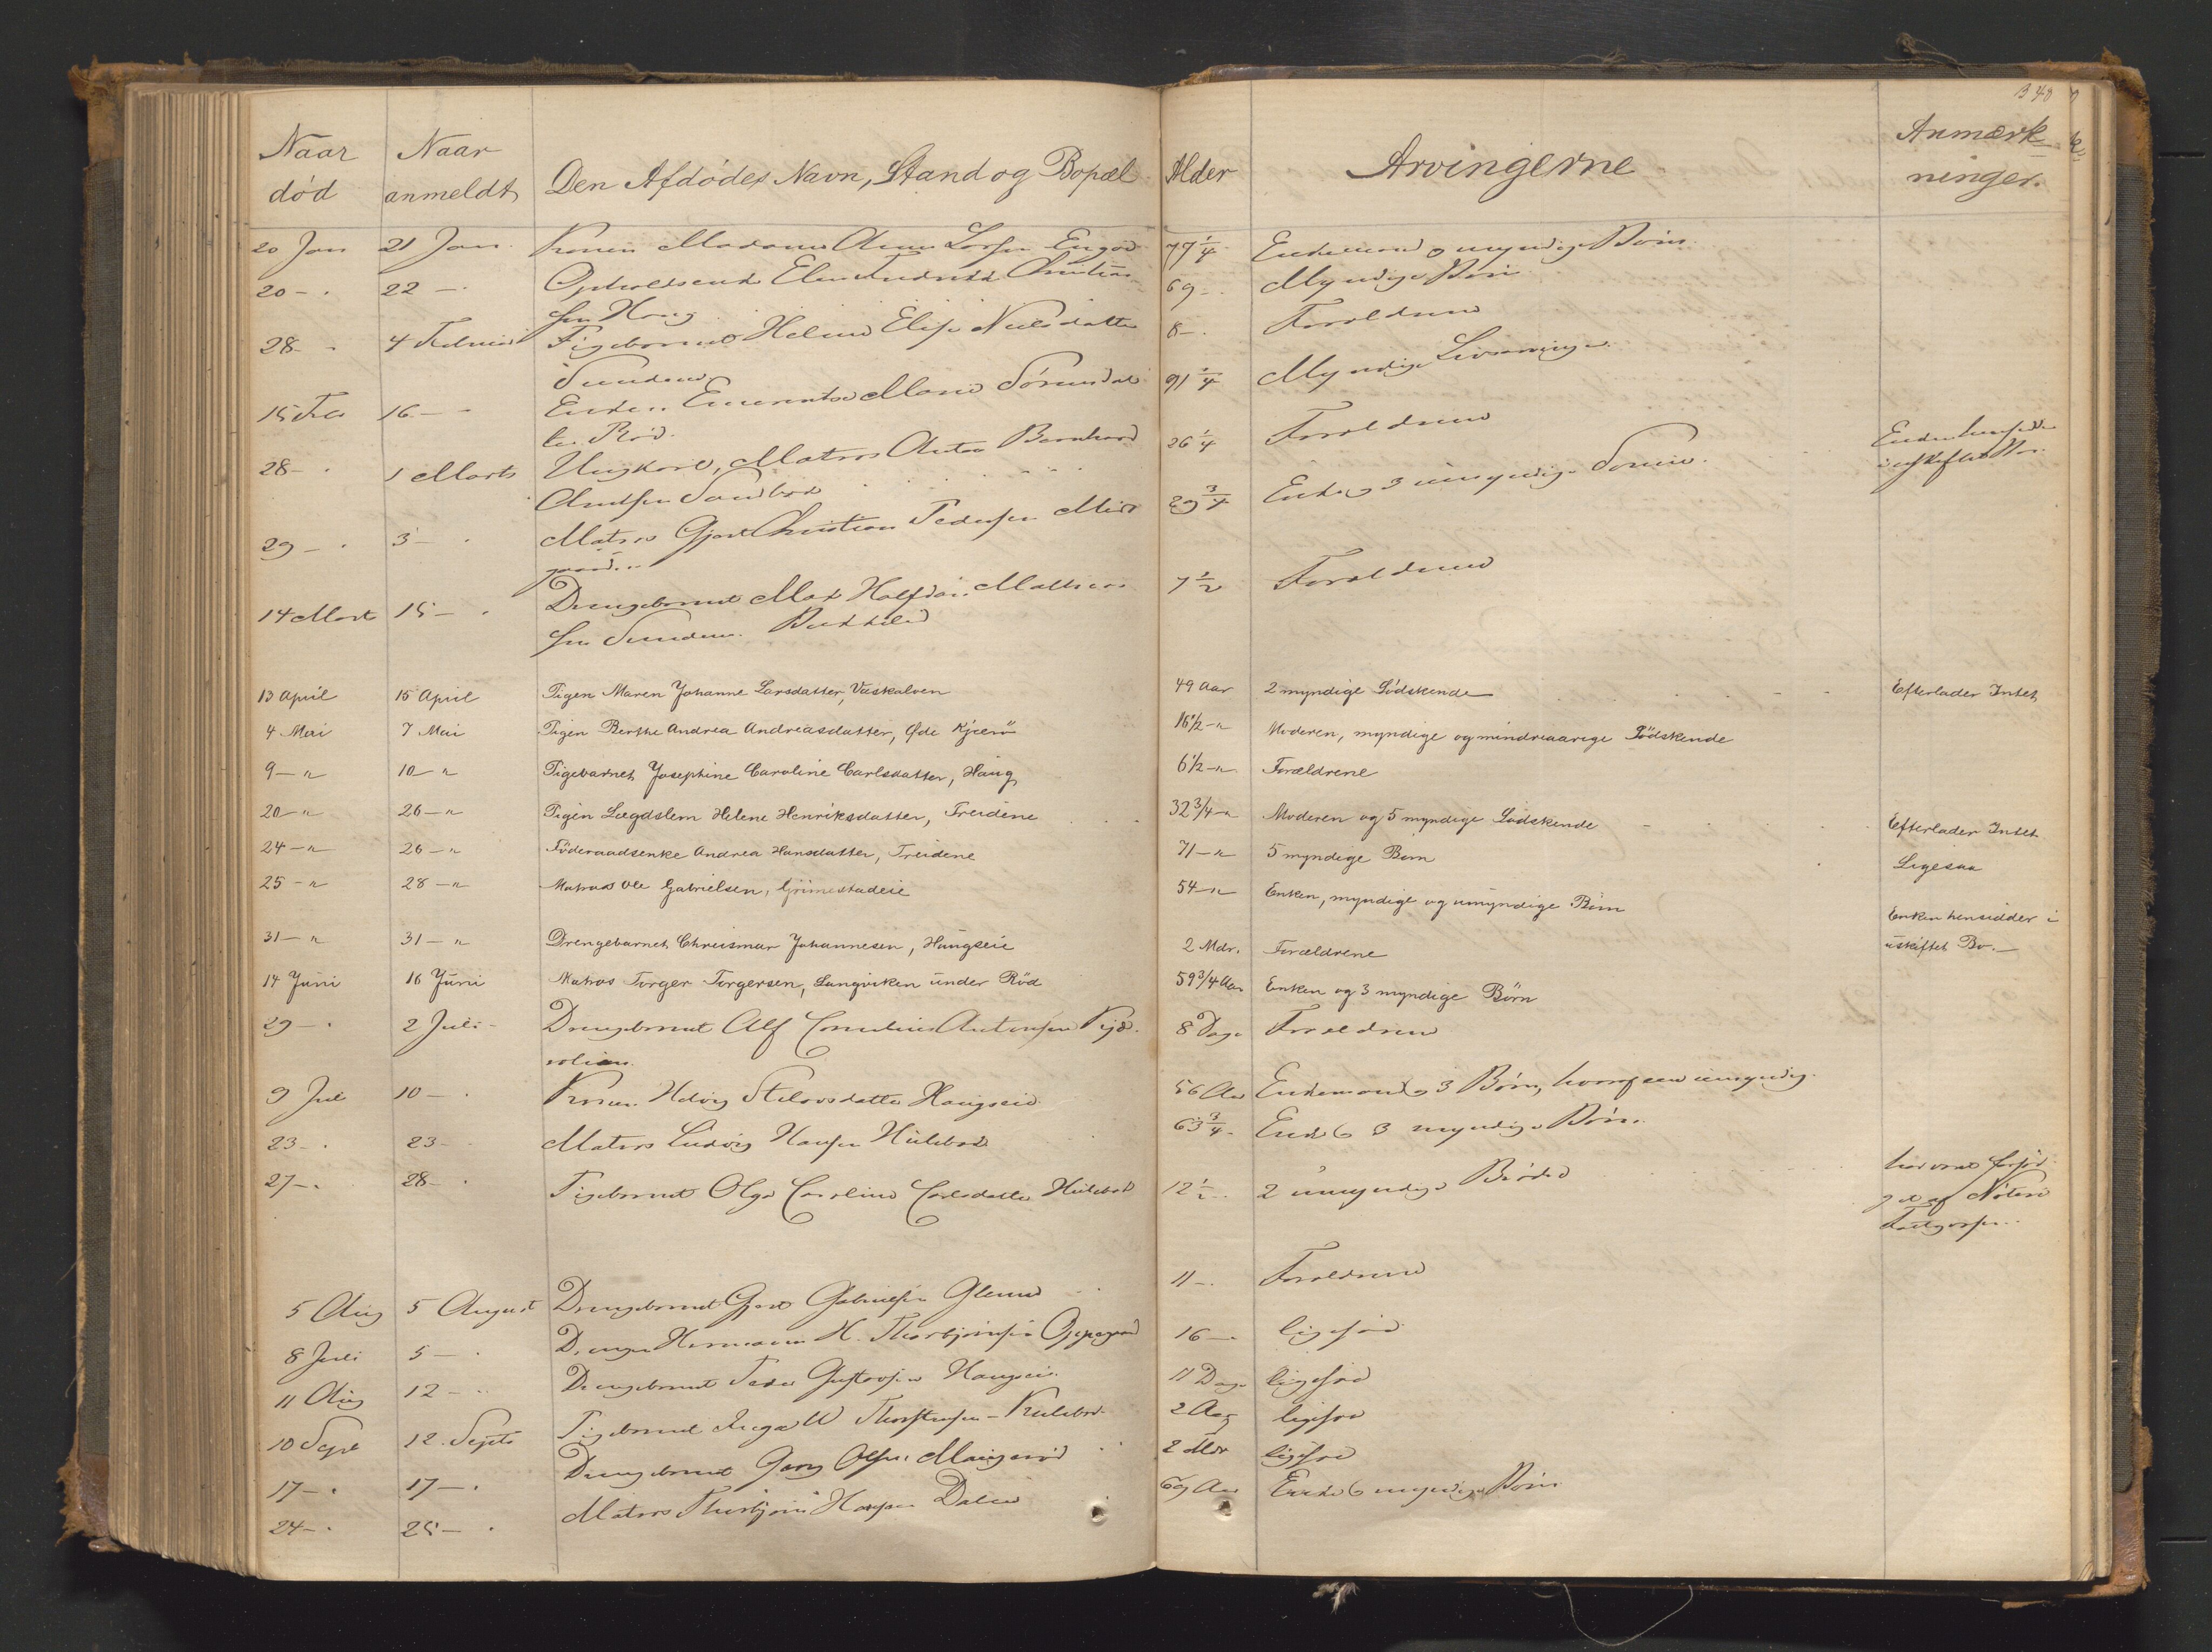 348
Naar død
Naar anmeldt
Den Afdødes Navn, Stand og Bopæl
Alder
Arvingerne
Anmærkninger.
20 Jan 21 Jan. Konen Madame Anne Larsen Engø 77 1/4 Enkemand og myndige Børn
20 - 22 - 69 - Myndige Børn
sen Haug
28 - 4 Februar Pigebarnet Helene Elise Nielsdatter 8 - Forældrene
Sundene
15 Feb 16 - Enken Emerentse Marie Sørensdat 91 1/4 Myndige Livsarvinger
ter Rød.
28 - 1 Marts Ungkarl, Matros Anton Bernhard 26 1/4 Forældrene
29 - 3 - Matros Christian Pedersen 29 3/4 Enke og 3 umyndige Sønner. Enken hensidder i uskiftet Bo.
14 Mart 15 - Drengebarnet Max Halfdan Mathias 7 1/2 Forældrene
sen Sundene.
13 April 15 April Pigen Maren Johanne Larsdatter, Væskalven 49 Aar 2 myndige Södskende Efterlader Intet
4 Mai 7 Mai Pigen Berthe Andrea Andreasdatter, Øde Kjærö 16 1/2 - " Moderen, myndige og mindreaarige Södskende
9 - " 10 - " Pigebarnet Josephine Caroline Carlsdatter, Haug 6 1/2 - " Forældrene
20 - " 26 - " Pigen Lægdslem Helene Henriksdatter, Treidene 32 3/4 - " Moderen og 5 myndige Södskende Efterlader Intet
24 - " 26 - " Föderaadsenke Andrea Hansdatter, Treidene 71 - " 5 myndige Børn Ligesaa
25 - " 28 - " Matros Ole Gabrielsen, Grimestadeie 54 - " Enken, myndige og umyndige Børn Enken hensidder i
uskiftet Bo. -
31 - " 31 - " Drengebarnet Chreismar Johannesen, Haugseie 2 Mdr. Forældrene
14 Juni 16 Juni Matros Torger Torgersen, Langviken under Röd 59 3/4 Aar Enken og 3 myndige Börn
29 - 2 Juli - Drengebarnet Alf Cornelius Antonsen 8 Dage Forældrene
9 Juli 10 - Konen Hedvig Haugseie 56 Aar Enkemand og 3 Børn, hvoraf een umyndig.
23 - 23 - Matros Ludvig Hansen Hulebak 63 3/4 - Enke & 3 myndige Børn.
27 - 28 - Pigebarnet Olga Caroline Carlsdatter Hulebak 12 1/2 - 2 umyndige Brødre har været forsør
get af
5 Aug 5 August Drengebarnet Gabrielsen Glenne 11 - Forældrene
8 Juli 5 - Drengen Hermann H. Thorbjørnsen Oppegaard 16 - ligesaa
11 Aug 12 - Drengebarnet Peder Gustavsen Haugseie. 11 Dage ligesaa
10 Sept 12. Septb Pigebarnet Inga Thorstensen - Hulebak 2 Aar ligesaa
17 - 17 - Drengebarnet Georg Olsen Maugerød 2 Mdr ligesaa
24 - 25 - Matros Thorbjørn Hansen Dalen 69 Aar Enke & myndige Børn